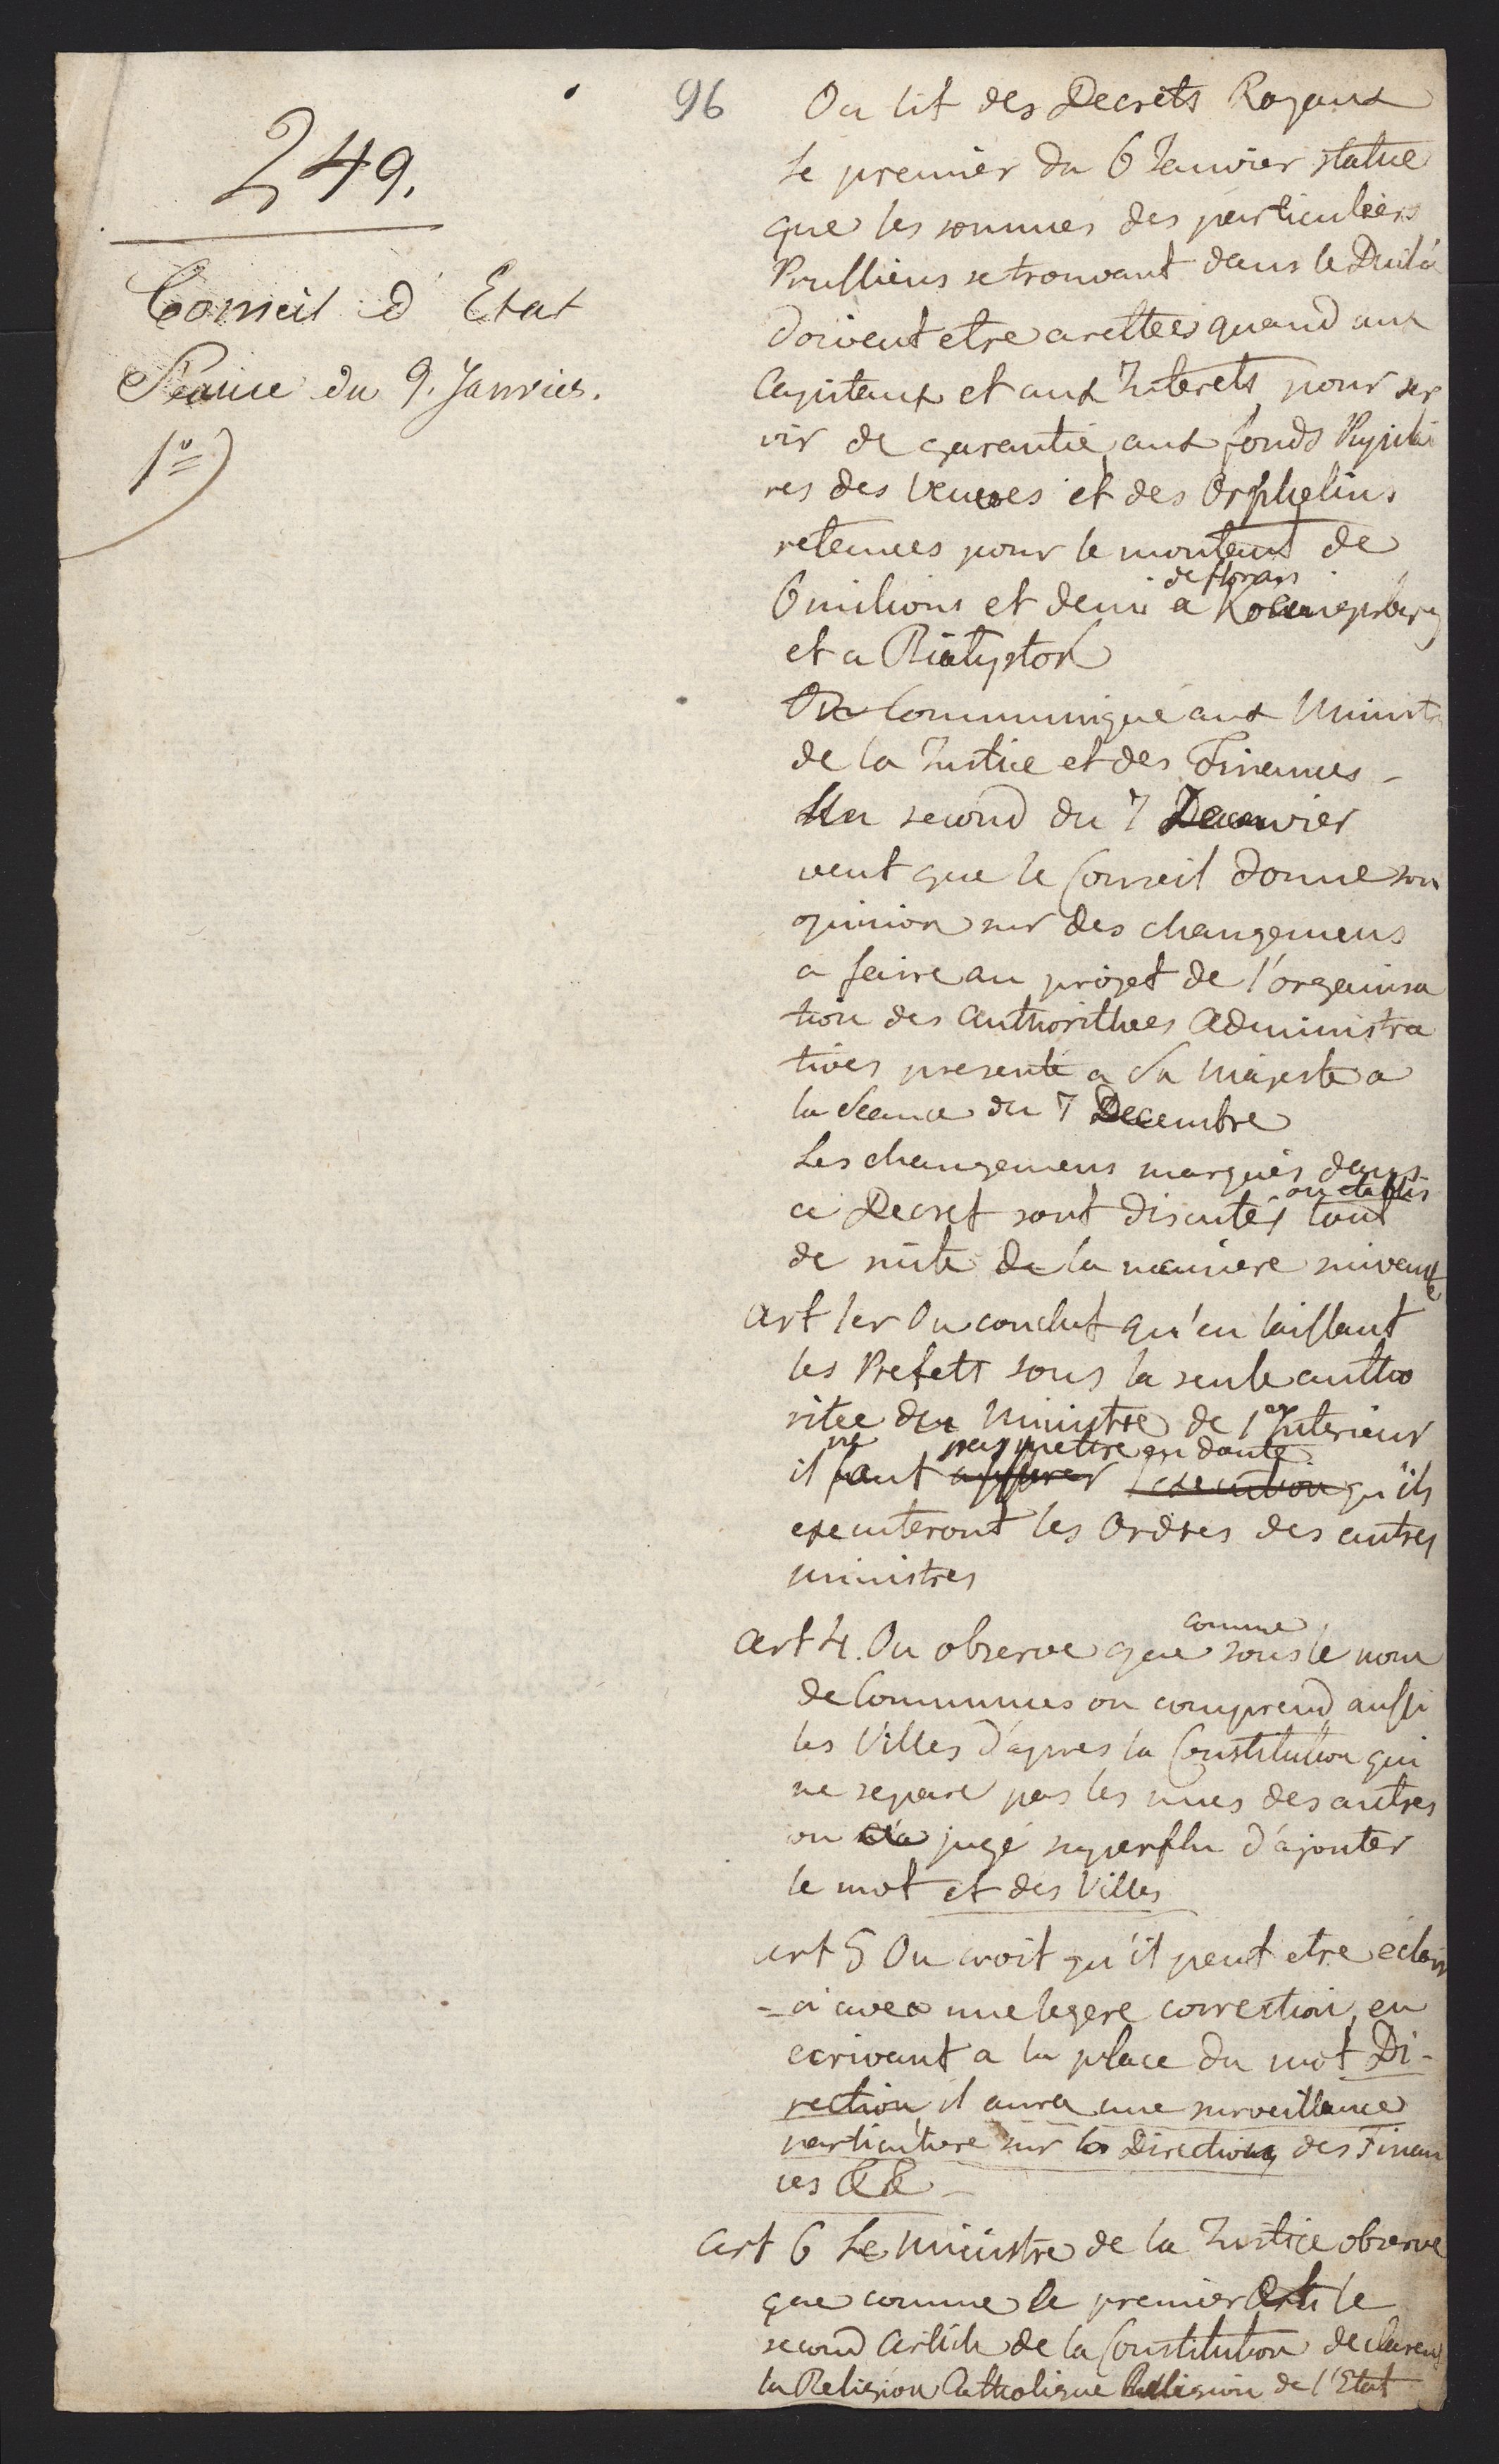 249.
Conseil d'Etat
Seance du 9. Janvier.
1º)
96
On lit des Decrets Royaux
le premier du 6 Janvier statue
que les sommes des particuliers
Prussiens se trouvant dans le Duché
doivent etre arettées quand aux
Capitaux et aux Interets pour ser
vir de garantie aux fonds Pupilai
res des veuves et des Orphelins
retenues pour le montant de
6 milions et demi de florins a Koenigsberg
et a Bialystok
Communiqué aux Ministr
de la Justice et des Finances -
Un second du 7 Janvier
veut que le Conseil donne son
opinion sur des changemens
a faire au projet de l'organisa
tion des authorithées administra
tives presenté a Sa Majeste a
la Seance du 7 Decembre
Les changemens marqués dans
ce Decret sont discutés ou etablis tout
de suite de la maniere suivante
Art 1er On conclut qu'en laissant
les Prefets sous la seule autho
ritée du Ministre de l'Interieur
il ne faut pas mettre en doute qu'ils
executeront les Ordres des autres
ministres
Art 4. On observe que comme sous le nom
de Communes on comprend aussi
les Villes d'apres la Constitution qui
ne separe pas les unes des autres
on a jugé superflu d'ajouter
le mot et des Villes
art 5 On croit qu'il peut etre éclair
-ci avec une legere correction, en
ecrivant a la place du mot Di-
rection, il aura une surveillance
particuliere sur les Directions des Finan
ces &&
Art 6 Le Ministre de la Justice observe
que comme le premier et le
second Article de la Constitution declarent
la Religion Catholique Religion de l'Etat